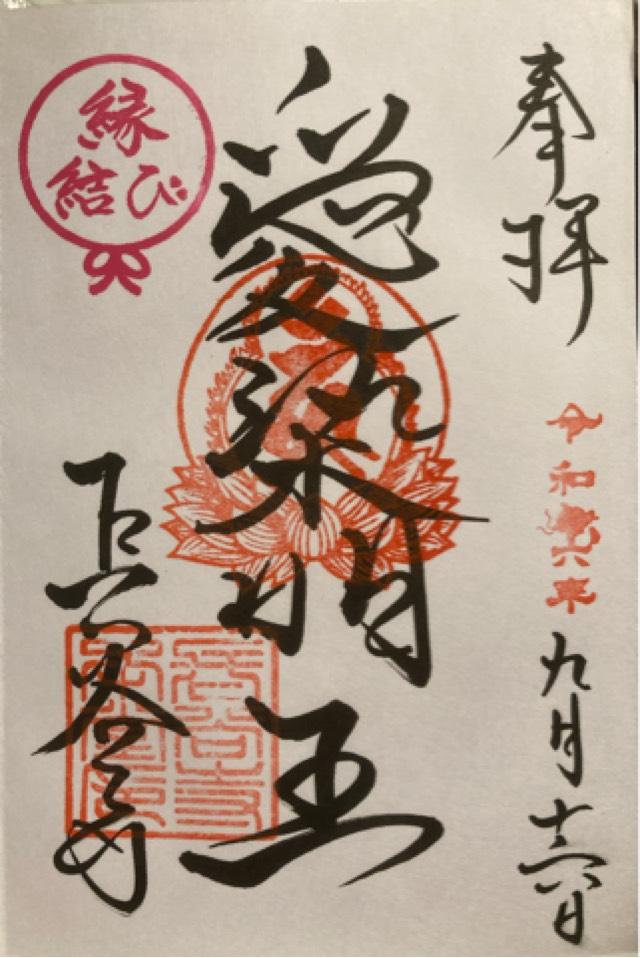 奉拝
令和六年
九月十六日
愛染明王
縁
結び
長谷寺